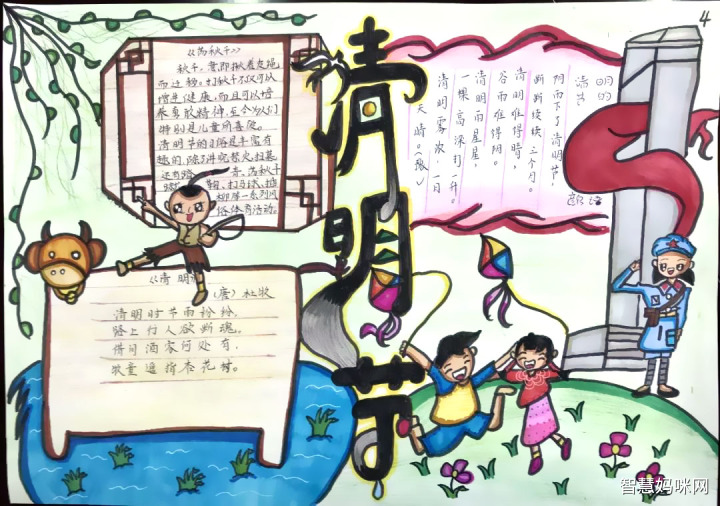 4
清明节
《荡秋千》
秋千,意即揪着皮绳
而迁移。打秋千不仅可以
增进健康,而且可以培
养勇敢精神,至今为人们
特别是儿童所喜爱。
清明节的习俗是丰富有
趣的,除了讲究禁火、扫墓,
还有踏青、荡秋千
蹴鞠、打马球、插
柳等一系列风
俗体育活动。
《清明》
(唐)杜牧
清明时节雨纷纷,
路上行人欲断魂。
借问酒家何处有,
牧童遥指杏花村。
清明的
谚语
阴雨下了清明节,
断断续续三个月。
清明难得晴,
谷雨难得阴。
清明雨星星,
一棵高粱打一升。
清明雾浓,一日
天晴。
智慧妈咪网